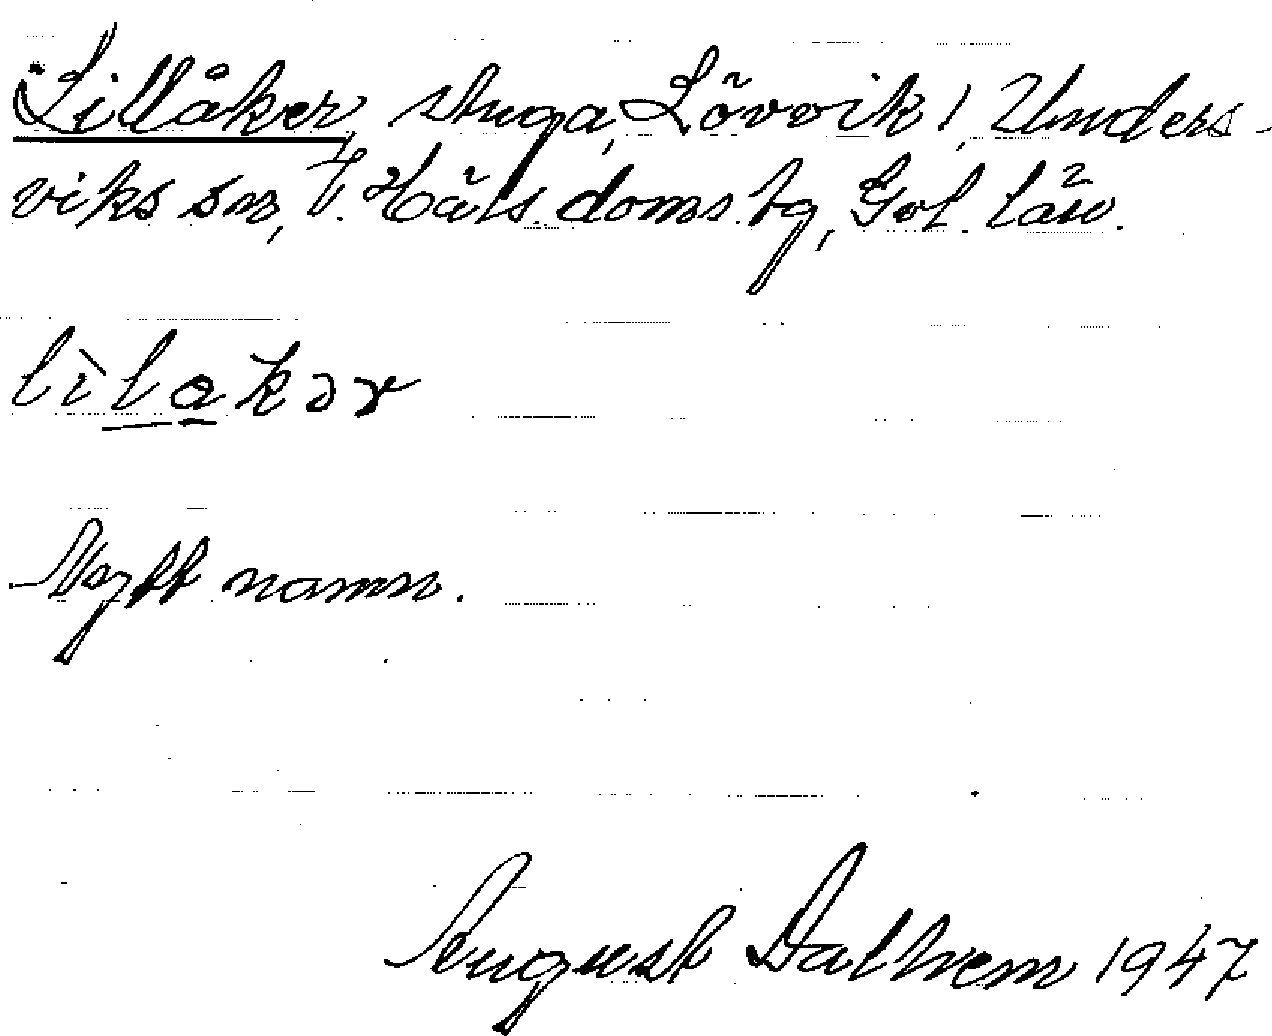 Lillåker, stuga, Lövvik 1, Unders-
viks sn, V. Häls. doms. tg, Gvl. län.
lìlakər
Nytt namn.
August Dalhem 1947